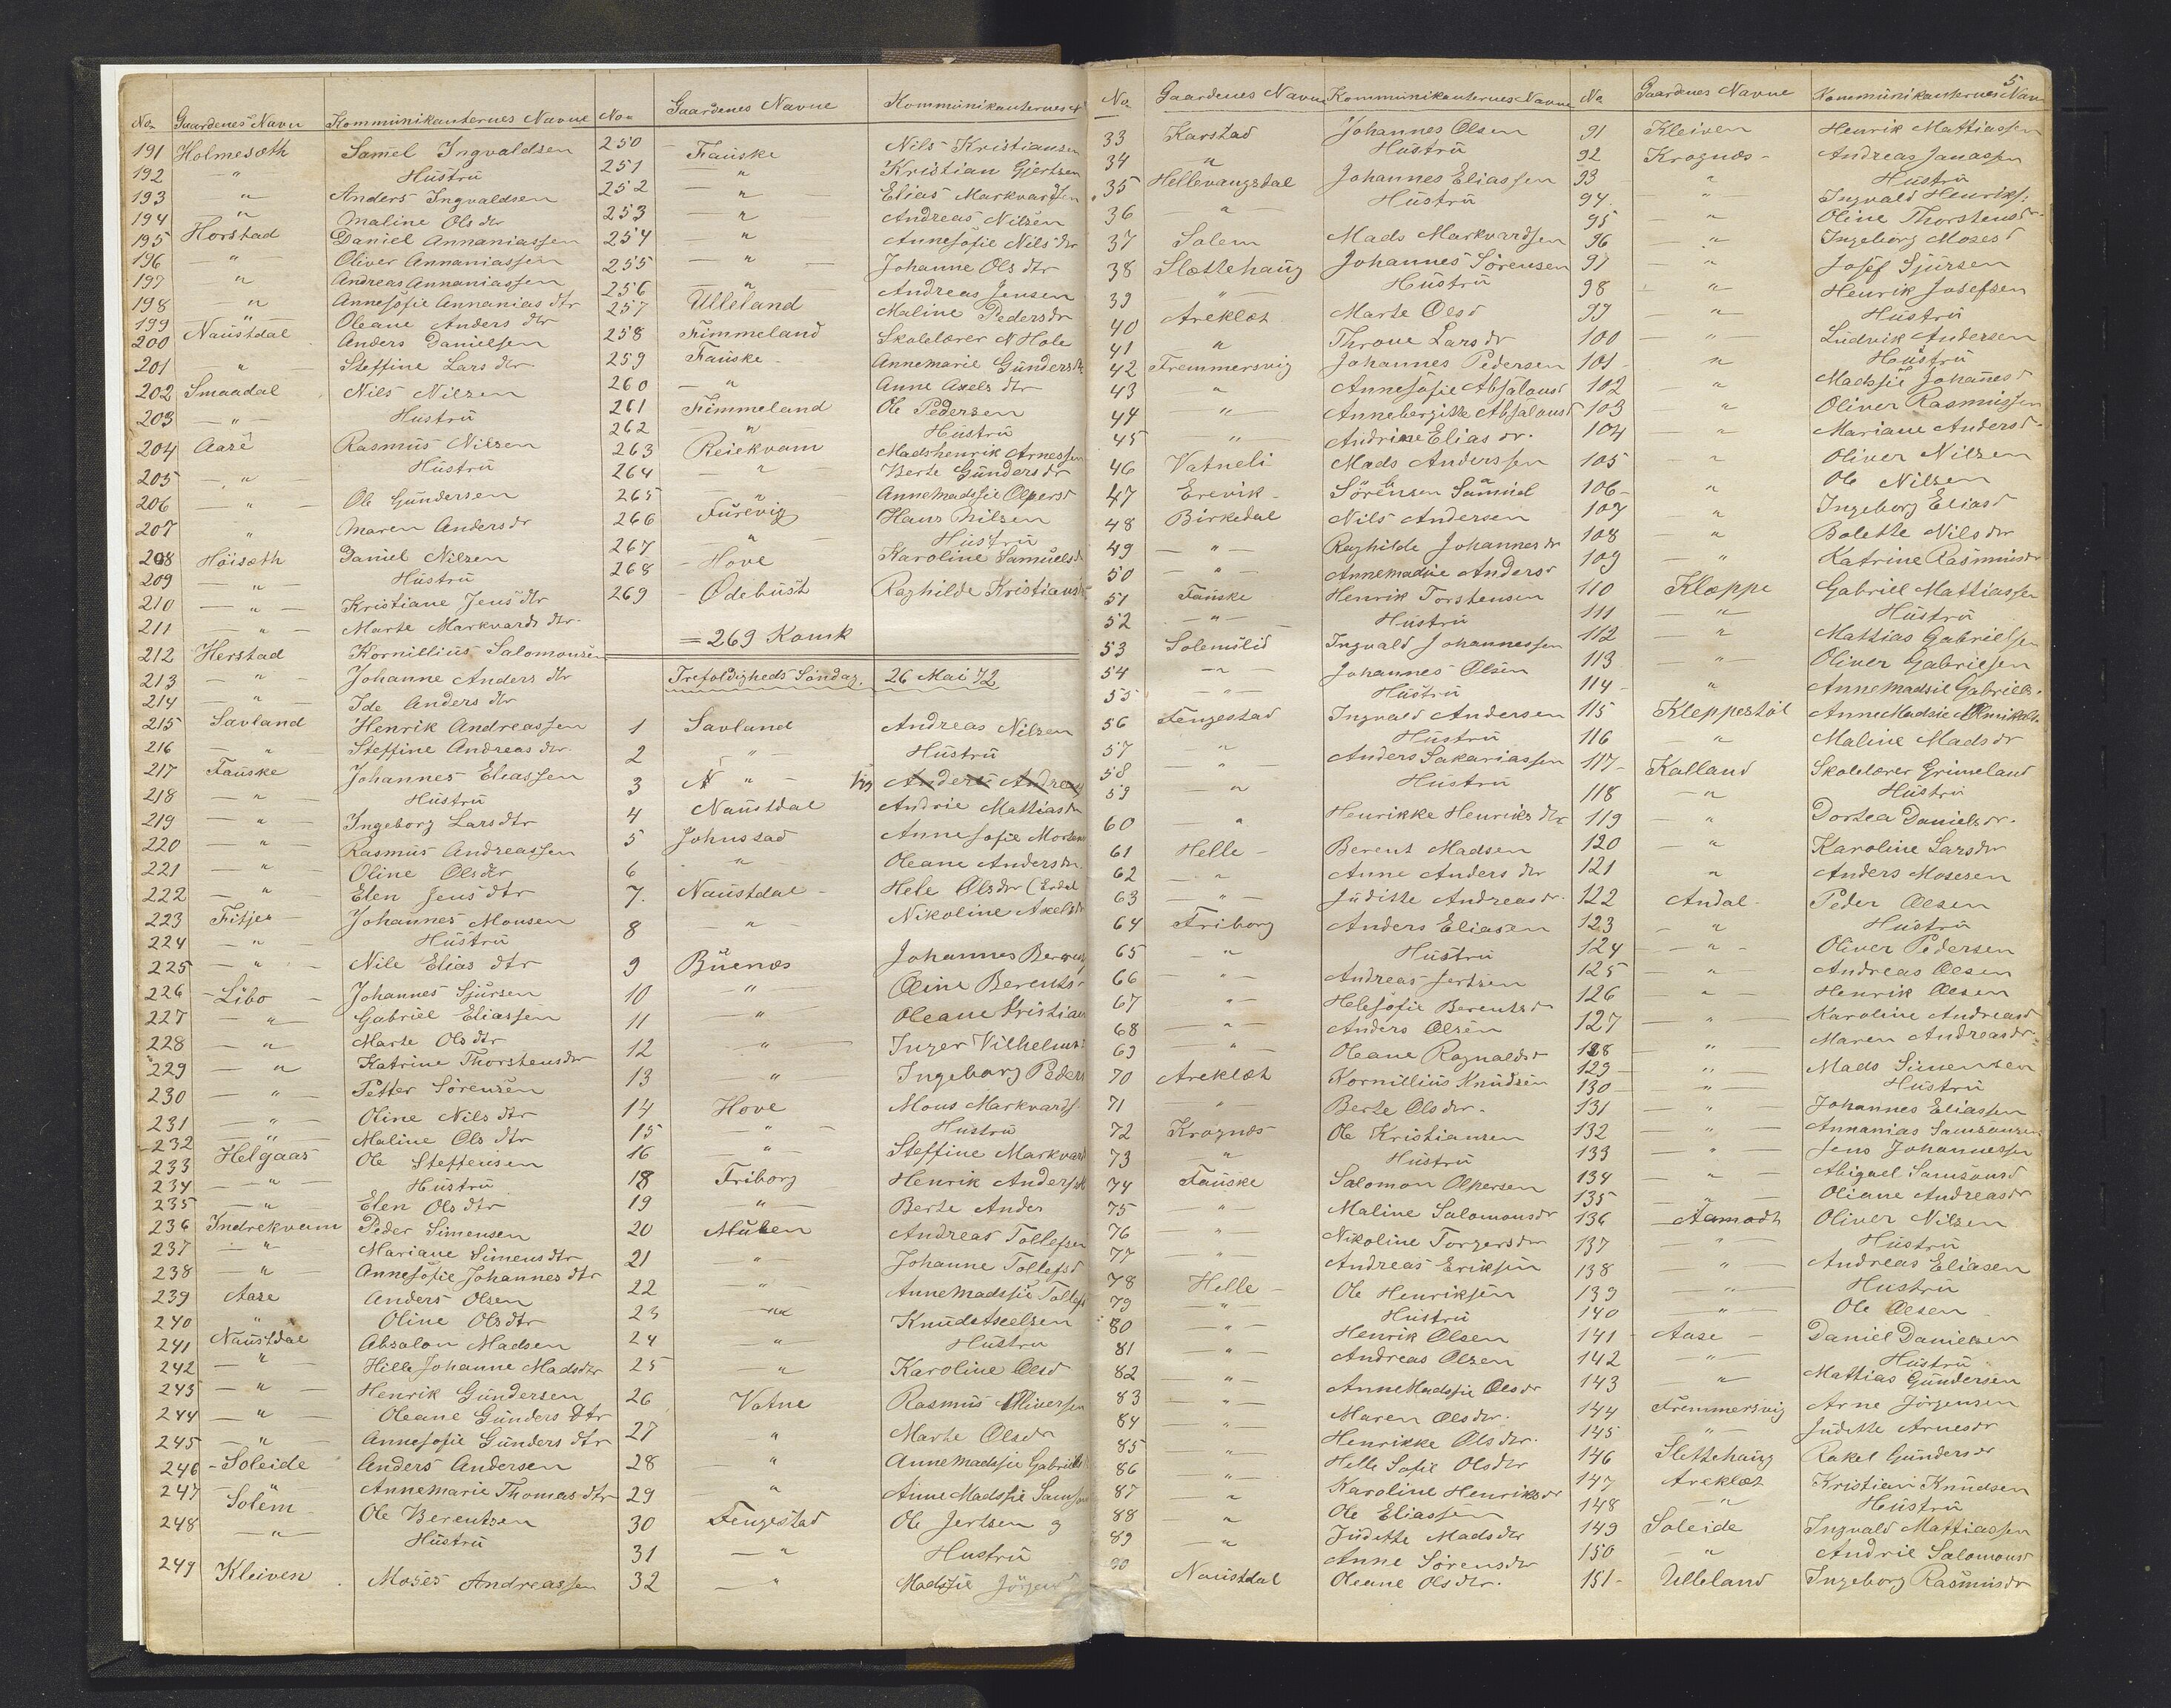 No. Gaardenes Navn Kommunikanternes Navne
191 Holmesæth Samel Ingvaldsen
192 — " — Hustru
193 " Anders Ingvaldsen
194 " Maline Olsdtr
195 Horstad Daniel Annaniassen
196 — " — Oliver Annaniassen
197 " Andreas Annaniassen
198 — " Annesofie Annanias dtr
199 — " Oleane Anders dtr
200 Naustdal Anders Danielsen
201 " Steffine Lars dtr
202 Smaadal Nils Nilsen
203 — " — Hustru
204 Aase Rasmus Nilsen
205 — " — Hustru
206 — " — Ole Gundersen
207 " Maren Anders dr
208 Höisæth Daniel Nilsen
209 — " — Hustru
210 — " — Kristiane Jens dtr
211 — " — Marte Markvards dtr
212 Herstad Kornillius Salomonsen
213 — " — Johanne Anders dtr
214 " Ide Anders dtr
215 Savland Henrik Andreassen
216 — " Steffine Andreas dtr
217 Fauske Johannes Eliassen
218 — " — Hustru
219 — " — Ingeborg Lars dtr
220 — " — Rasmus Andreassen
221 — " — Oline Olsdtr
222 — " Elen Jens dtr
223 Fitjer Johannes Monsen
224 — " — Hustru
225 — " — Nile Elias dtr
226 Libo Johannes Sjursen
227 — " — Gabriel Eliassen
228 — " — Marte Olsdtr
229 — " Katrine Thorstensdtr
230 — " — Petter Sörensen
231 — " — Oline Nils dtr
232 " Maline Ols dtr
233 Helgaas Ole Steffensen
234 — " — Hustru
235 — " Elen Ols dtr
236 Indrekvam Peder Simensen
237 — " Mariane Simens dtr
238 — " Annesofie Johannes dtr
239 Aase Anders Olsen
240 " Oline Olsdtr
241 Naustdal Absalon Madsen
242 — " Hille Johanne Madsdtr
243 — " — Henrik Gundersen
244 — " — Oleane Gunders dtr
245 — " Annesofie Gunders dtr
246 Soleide Anders Andersen
247 Solem Annemarie Thomas dtr
248 — " — Ole Berentsen
Hustru
249 Kleiven Moses Andreassen
No. Gaardenes Navne Kommunikanternes N
250 Fauske Nils Kristiansen
251 — " Kristian Gjertsen
252 — " Elias Markvardsen
253 — " Andreas Nilsen
254 — " Annesofie Nils dtr
255 — " — Johanne Ols dtr
256 " Andreas Jensen
257 Ulleland Maline Pedersdr
258 Fimmeland Skolelærer N Hole
259 Fauske Annemarie Gundersdr
260 — " Anne Axels dtr
261 Fimmeland Ole Pedersen
262 — " Hustru
263 Reiekvam Madshenrik Arnessen
264 — " — Berte Gunders dr
265 " AnneMadssie Olpersd
266 Furevig Hans Nilsen
267 " Hustru
268 Hove Karoline Samuelsd
269 Ødebust Raghilde Kristiansd
= 269 Komk
Trefoldigheds Söndag. 26 Mai 72
1 Savland Andreas Nilsen
2 " — Hustru
3 N " — Anders Andreas
4 Naustdal Andrie Mattiasdr
5 Johnstad Anne Sofie
6 " Oleane Andersdr
7. Naustdal Hele Olsdtr (Erdal
8 — " — Nikoline Axelsdr
9 Buenæs Johannes
10 — " Oline Berents
11 — " Oleane Kristian
12 " — Inger Vilhelms
13 " Ingeborg Peders
14 Hove Mons Markvards
15 — " — Hustru
16 — " Steffine Markvard
18 Friborg Henrik Anderssen
19 — " — Berte Ander
20 Muben Andreas Tollefsen
21 " Johanne Tollefsd
22 — " AnneMadssie Tollefs
23 — " Knud Axelsen
24 — " Hustru
25 — " Karoline Olsd
26 Vatne Rasmus Oliversen
27 " Marte Olsdr
28 " AnneMadssie Gabriels
29 " AnneMadssie Samson
30 Fengestad Ole Jertsen g
31 — " Hustru
32 — " Madssie
No. Gaardenes Navne Kommunikanternes Navne
33 Karstad Johannes Olsen
34 " Hustru
35 Hellevangstal Johannes Eliassen
36 — " — Hustru
37 Solem Mads Markvardsen
38 Slættehaug Johannes Sörensen
39 " Hustru
40 Areklæt Marte Olsd
41 " Throne Lars dr
42 Fremmersvig Johannes Pedersen
43 " Annesofie Absalonsd
44 " Annebergitte Absalonsd
45 " Andrine Elias dr.
46 Vatneli Mads Anderssen
47 Erevik Sörensen Samuel
48 Birkedal Nils Andersen
49 — " — Raghilde Johannes dr
50 — " — Annemadsie Andersd
51 Fauske Henrik Torstensen
52 — " — Hustru
53 Solemslid Ingvald Johannessen
54 — " — Johannes Olsen
55 — " — Hustru
56 Fengestad Ingvald Andersen
57 " Hustru
58 — " — Anders Sakariassen
59 — " Hustru
60 " Henrikke Henriks dtr
61 Helle Berent Madsen
62 — " Anne Anders dtr
63 — " — Juditte Andreasdr.
64 Friborg Anders Eliasen
65 — " Hustru
66 — " — Andreas Jertsen
67 " — Helesofie Berentsd
68 — " — Anders Olsen
69 " Oleane Ragnaldsd
70 Areklæt Kornillius Knudsen
71 — " — Berte Olsdtr.
72 Krognæs Ole Kristiansen
73 — " Hustru
74 Fauske Salomon Olpersen
75 — " — Maline Salomonsdr
76 " Nikoline Torgersdr
77 " Andreas Eriksen
78 Helle Ole Henriksen
79 " — Hustru
80 — " — Henrik Olsen
81 — " — Andreas Olsen
82 — " — AnneMadssie Olsdr
83 — " — Maren Olsdtr.
84 " Henrikke Olsdtr.
85 — " — Helle Sofie Olsdtr
86 " — Karoline Henriksdr
87 " Ole Eliassen
88 " Juditte Madsdtr
89 — " Anne Sörensdtr
90 Naustdal Oleane Olsdtr.
5
No Gaardenes Navne Kommunikanternes Navn
91 Kleiven Henrik Mattiassen
92 Krognæs Andreas Janassen
93 " Hustru
94. " Ingvald Henriks:
95 — " Oline Thorstensdr
96 — " — Ingeborg Mosesd
97 — " Josef Sjursen
98 " — Henrik Josefsen
99 — " — Hustru
100 — " Ludvik Andersen
101 " Hustru
102 " Madssie Johannesd
103 " Oliver Rasmussen
104 — " — Mariane Andersd
105 — " Oliver Nilsen
106 " Ole Nilsen
107 " Ingeborg Eliasd
108 " Bolette Nilsdtr
109 — " Katrine Rasmusdr
110 Kleppe Gabriel Mattiassen
111 — " — Hustru
112 " Mattias Gabrielsen
113 — " — Oliver Gabrielsen
114 " AnneMadsie Gabriels.
115 Kleppestöl AnneMadsie
116 — " Maline Mads dr
117 Kalland Skolelærer Grimeland
118 — " Hustru
119 " Dortea Danielsdr.
120 — " Karoline Larsdtr
121 " Anders Mosesen
122 Andal Peder Olsen
123 — " Hustru
124 — " — Oliver Pedersen
125 — " — Andreas Olsen
126 — " — Henrik Olsen
127 — " — Karoline Andreasd
128 " Maren Andreasdr.
129 " — Mads Simensen
130 — " — Hustru
131 — " Johannes Eliassen
132 — " — Annanias Samsonsen
133 — " — Jens Johannessen
134 — " — Abigael Samsonsd
135 — " — Oliane Andreasdr
136 Aamodt Oliver Nilsen
137 " Hustru
138 — " — Andreas Eliasen
139 — " — Hustru
140 — " — Ole Olsen
141 Aase Daniel Danielsen
142 — " — Hustru "
143 — " Mattias Gundersen
144 Fremmersvig Arne Jörgensen
145 " — Juditte Arnesdr
146 Slettehaug Rakel Gundersdr
147 Areklæt Kristian Knudsen
148 — " Hustru
149 Soleide Ingvald Mattiassen
150 — " Andrie Salomonsd
151 Ulleland Ingeborg Rasmusdr